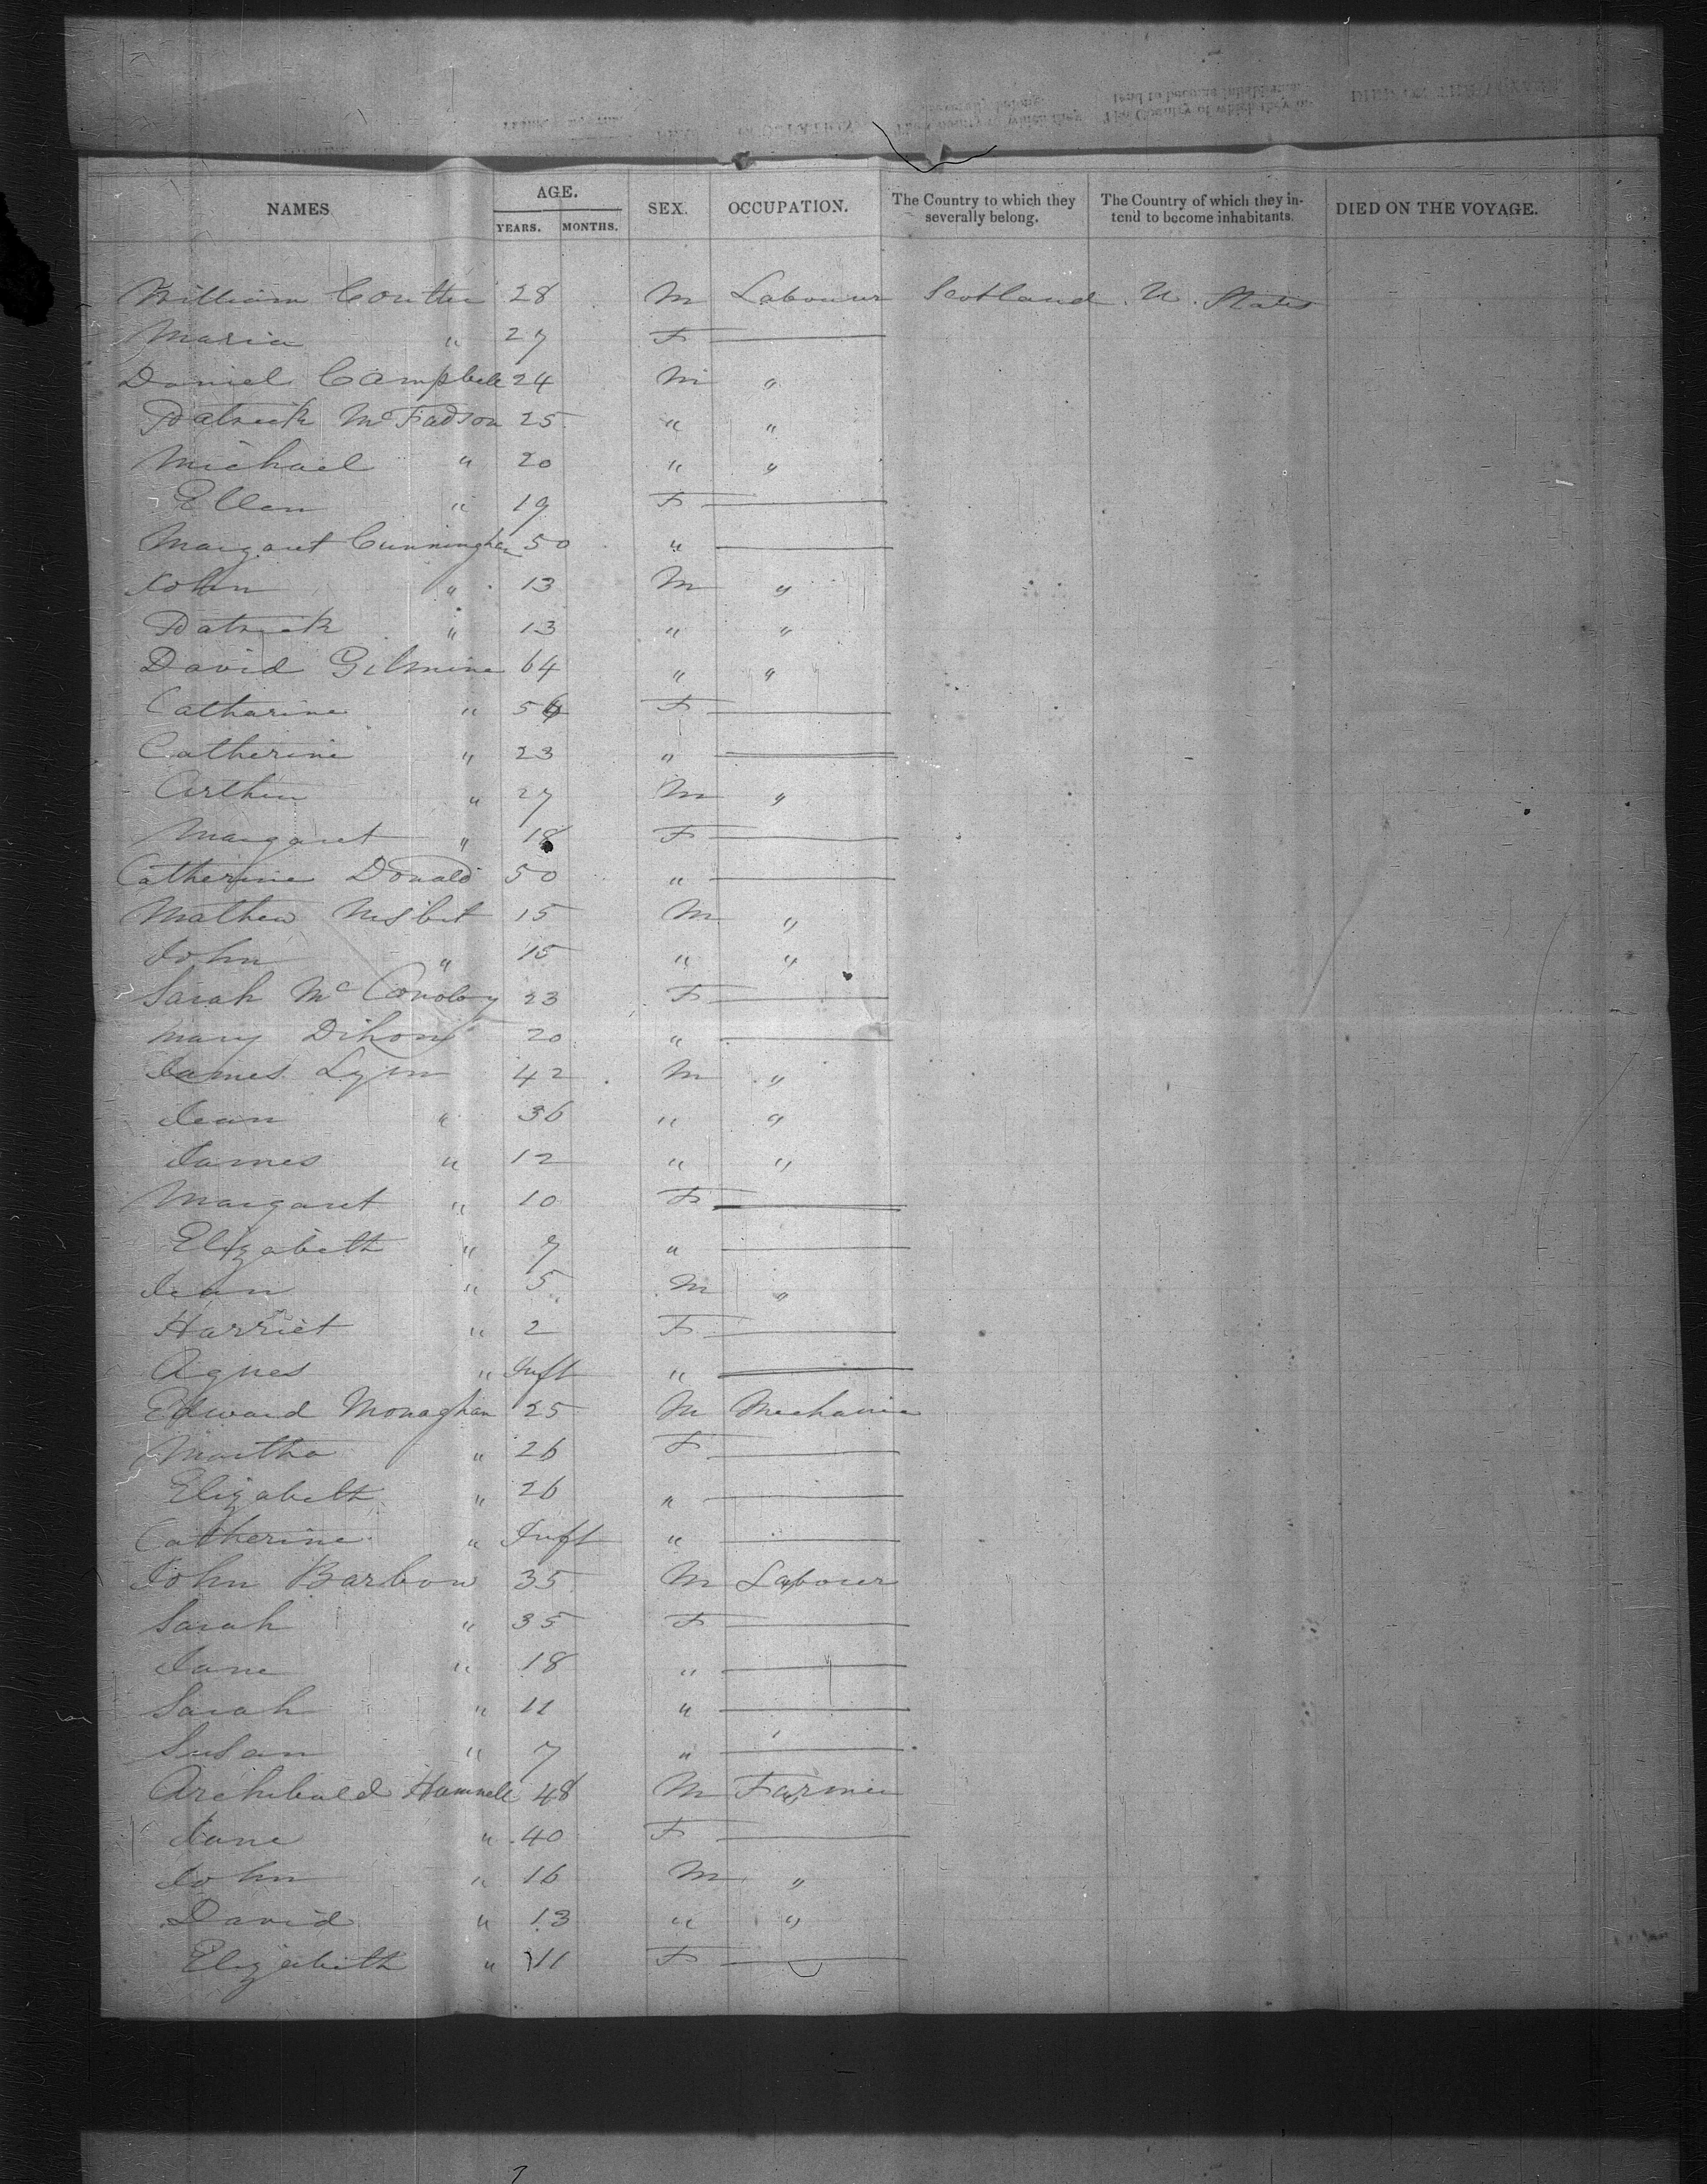 NAMES AGE. YEARS. MONTHS. SEX. OCCUPATION. The Country to which they severally belong. The Country of which they intend to become inhabitants. DIED ON THE VOYAGE.
William Coulter 28 M Labourer Scotland U. States
Maria " 27 F
Daniel Campbell 24 M "
Patrick McFadson 25 " "
Michael " 20 " "
Ellen " 19 F
Margaret Cunningham 50 "
John " 13 M "
Patrick " 13 " "
David Gilmine 64 " "
Catharine " 54 F
Catherine " 23 "
Arthur " 27 M "
Margaret " 18 F
Catherine Donald 50 "
Mathew Nesbit 15 M "
John " 15 " "
Sarah Mc 23 F
Mary Dihon 20 "
James Lynn 42 M "
Jean " 36 " "
James " 12 " "
Margaret " 10 F
Elizabeth " 7 "
Jean " 5 M "
Harriet " 2 F
Agnes " Inft "
Edward Monaghan 25 M Mechanic
Martha " 26 F
Elizabeth " 26 "
Catherine " Inft "
John Barbour 35 M Labourer
Sarah " 35 F
Jane " 18 "
Sarah " 11 "
Susan " 7 "
Archibald Hammell 48 M Farmer
Jane " 40 F
John " 16 M "
David " 13 " "
Elizabeth " 11 F